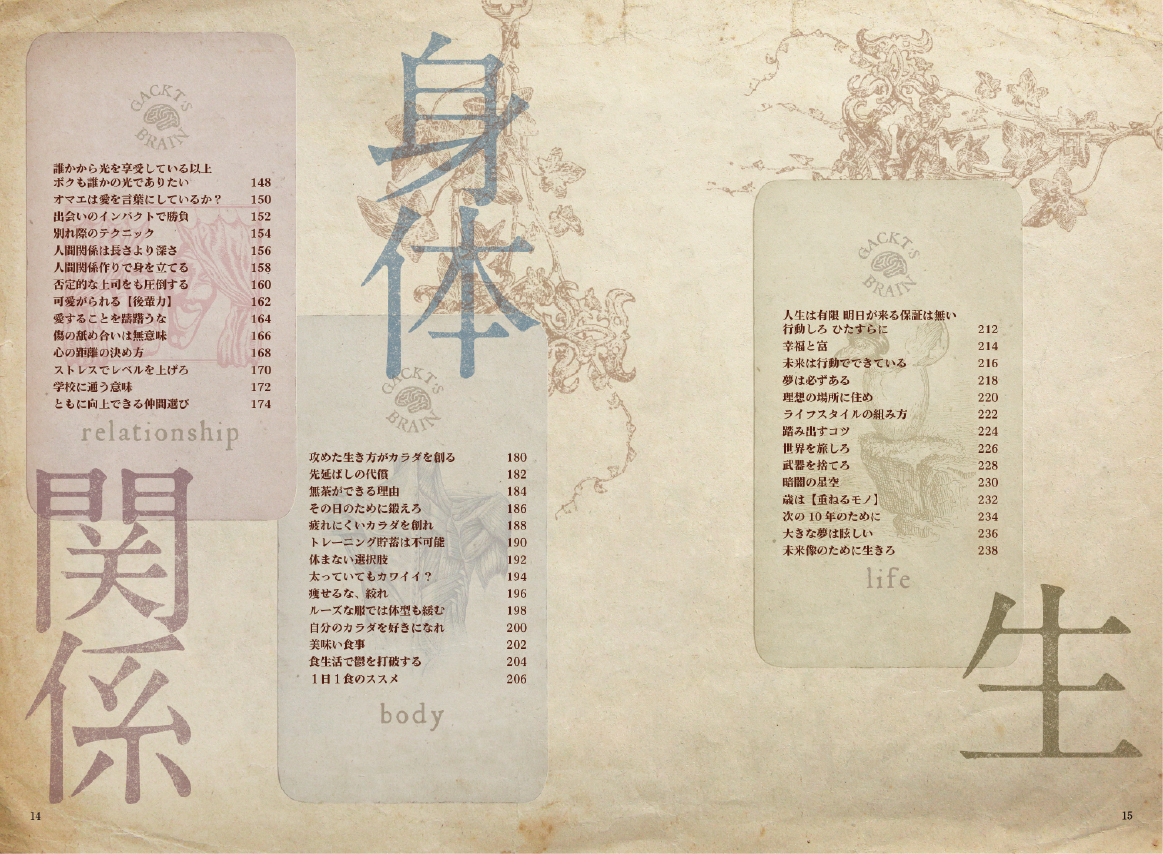 GACKT's BRAIN
誰かから光を享受している以上
ボクも誰かの光でありたい 148
オマエは愛を言葉にしているか? 150
出会いのインパクトで勝負 152
別れ際のテクニック 154
人間関係は長さより深さ 156
人間関係作りで身を立てる 158
否定的な上司をも圧倒する 160
可愛がられる【後輩力】 162
愛することを躊躇うな 164
傷の舐め合いは無意味 166
心の距離の決め方 168
ストレスでレベルを上げろ 170
学校に通う意味 172
ともに向上できる仲間選び 174
relationship
関係
身体
GACKT's BRAIN
攻めた生き方がカラダを創る 180
先延ばしの代償 182
無茶ができる理由 184
その日のために鍛えろ 186
疲れにくいカラダを創れ 188
トレーニング貯蓄は不可能 190
休まない選択肢 192
太っていてもカワイイ? 194
痩せるな、絞れ 196
ルーズな服では体型も緩む 198
自分のカラダを好きになれ 200
美味い食事 202
食生活で鬱を打破する 204
1日1食のススメ 206
body
GACKT's BRAIN
人生は有限 明日が来る保証は無い
行動しろ ひたすらに 212
幸福と富 214
未来は行動でできている 216
夢は必ずある 218
理想の場所に住め 220
ライフスタイルの組み方 222
踏み出すコツ 224
世界を旅しろ 226
武器を捨てろ 228
暗闇の星空 230
歳は【重ねるモノ】 232
次の10年のために 234
大きな夢は眩しい 236
未来像のために生きろ 238
life
生
14
15